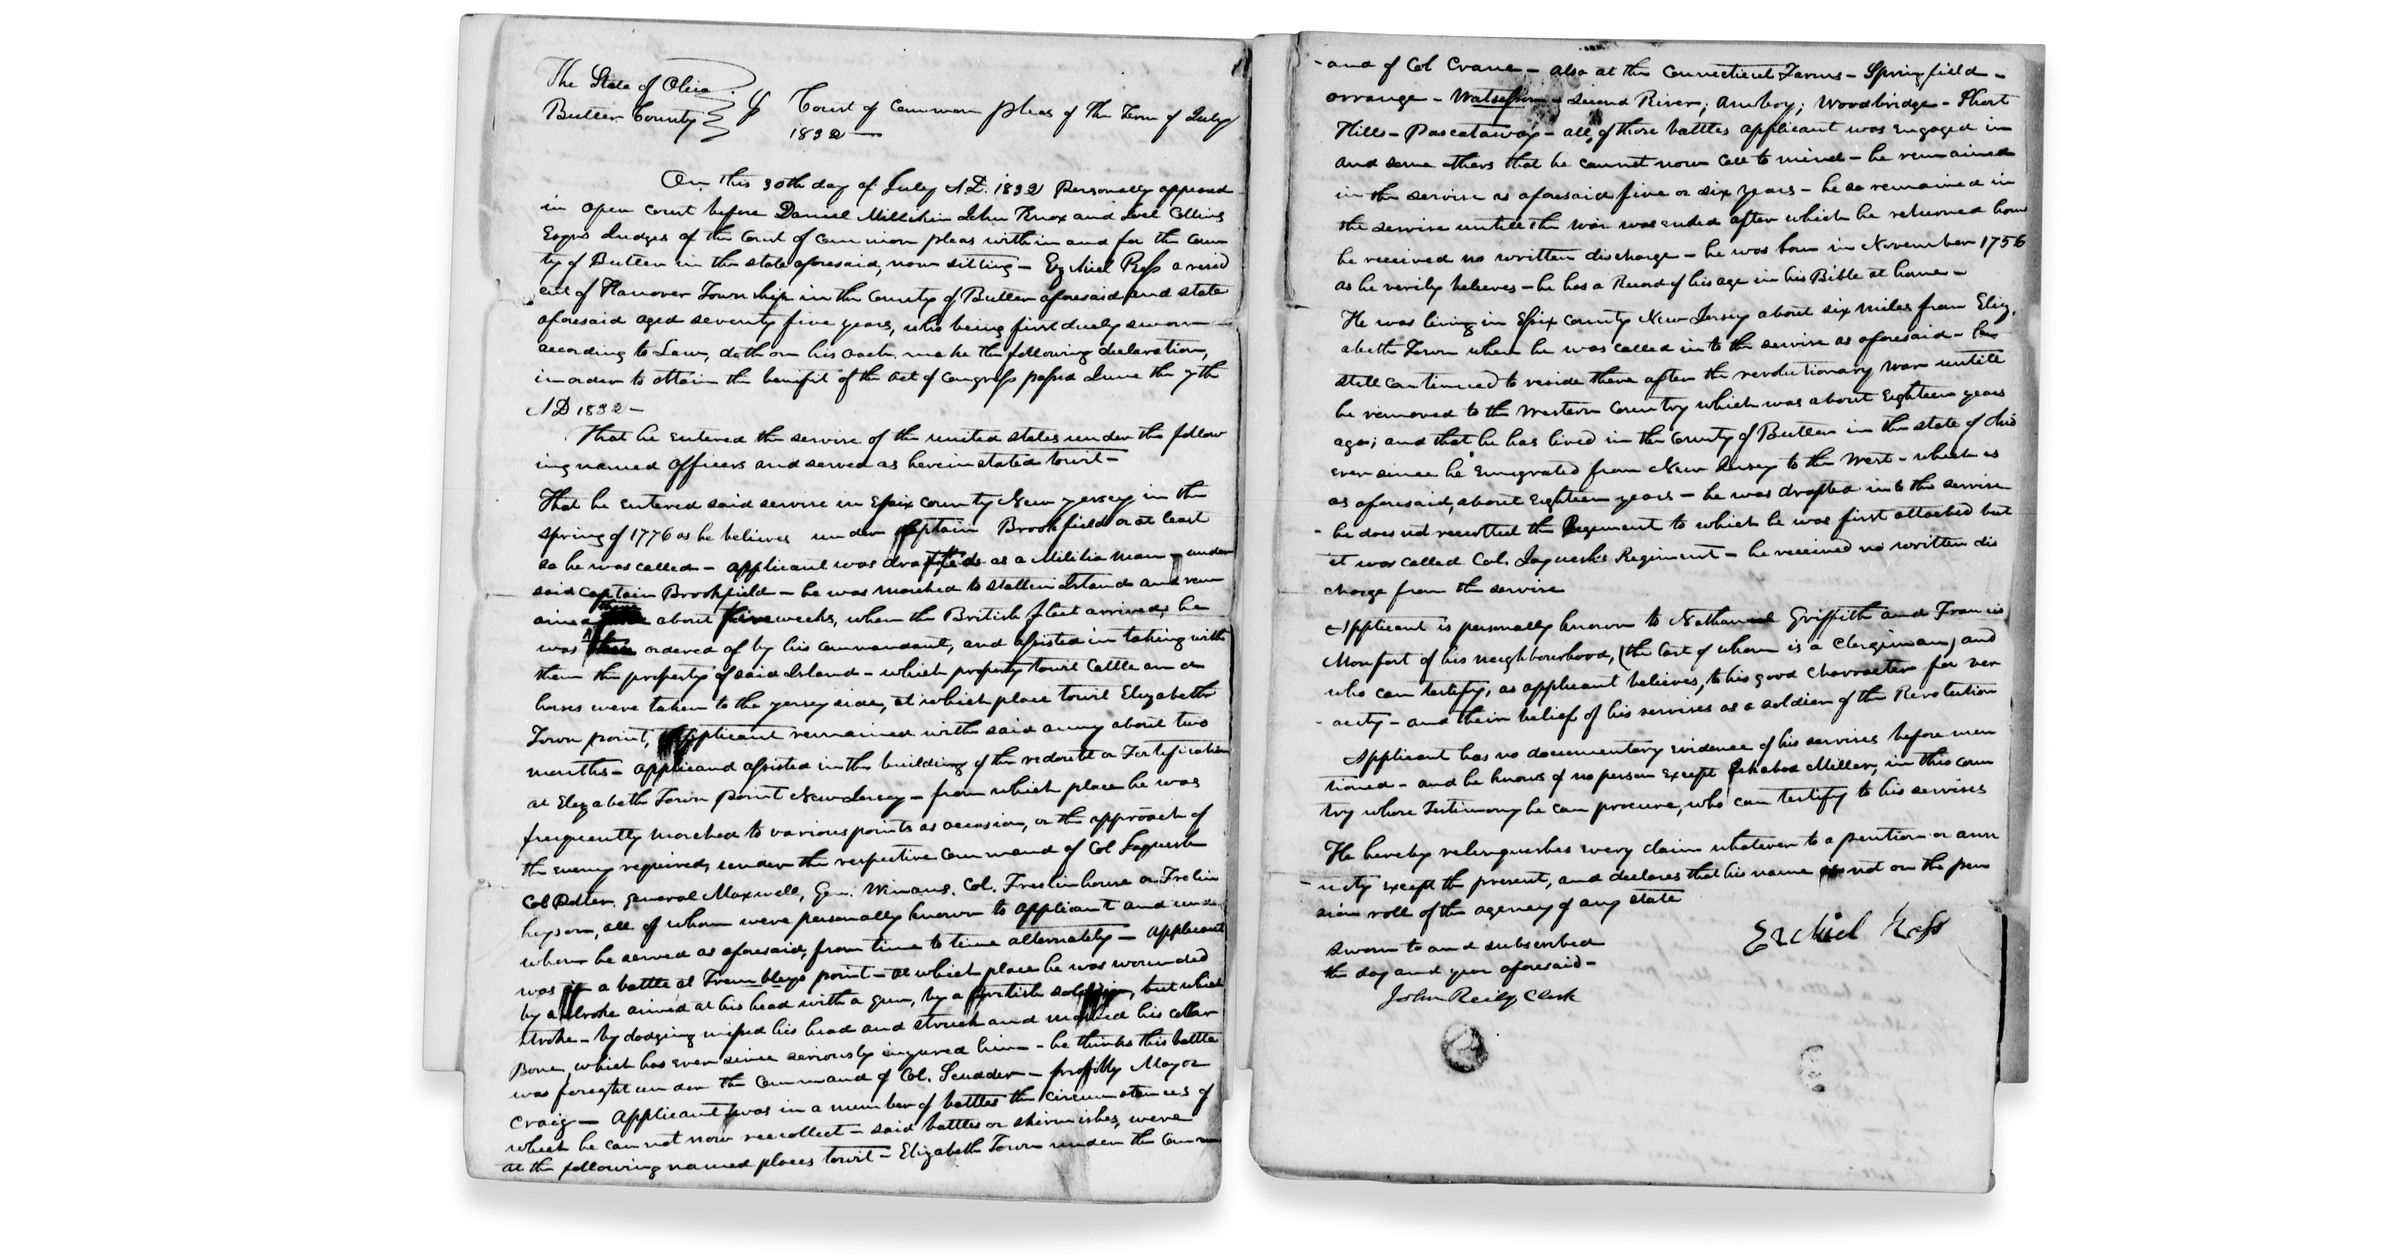 The State of Ohio
Butler County } Court of Common pleas of the Term of July
1832 —
On this 30th day of July A.D. 1832 Personally appeared
in open court before Daniel Millikin John Knox and Joel Collins
Esqrs Judges of the Court of common pleas within and for the coun
ty of Butler in the state aforesaid, now sitting — Ezekiel Ross a resid
ent of Hanover Township in the County of Butler aforesaid and state
aforesaid aged seventy five years, who being first duely sworn
according to Law, doth on his oath, make the following declaration,
in order to obtain the benefit of the act of congress passed June the 7th
AD 1832 —
That he entered the service of the united states under the follow
ing named officers and served as herein stated towit —
That he entered said service in Essix county New jersey in the
spring of 1776 as he believes under captain Brookfield or at least
so he was called — applicant was drafted as a Militia man — under
said captain Brookfield — he was marched to Statten Island and rem
ained there about five weeks, when the British fleet arrived, he
was ordered of by his commandant, and assisted in taking with
them the property of said Island — which property towit Cattle and
horses were taken to the jersey side, at which place towit Elizabeth
Town point, applicant remained with said army about two
months — applicand assisted in the building of the redoubt or Fortification
at Elizabeth Town point New Jersey — from which place he was
frequently marched to various points as occasion, or the approach of
the enemy required, under the respective command of Col Jaquesh
Col Potter, general Maxwell, Gen. Winans, Col. Freslinhouse or Frelin
heyson, all of whom were personally known to applicant and unde
whom he served as aforesaid, from time to time alternately — applicant
was in a battle at Trembleys point — at which place he was wounded
by a stroke aimed at his head with a gun, by a British soldier, but which
stroke — by dodging missed his head and struck and his collar
Bone, which has ever since seriously injured him — he thinks this battle
was fought under the command of Col. Scudder — possibly Mayor
Craig — applicant was in a number of battles the circumstances of
which he can not now recollect — said battles or skirmishes, were
at the following named places towit — Elizabeth Town under the comm
-and of Col Crane — also at the Connecticut Farms — Springfield —
orrange — — Second River; Amboy; Woodbridge — Short
Hills — Pascataway — all of those battles applicant was engaged in
and some others that he cannot now call to mind — he remained
in the service as aforesaid five or six years — he so remained in
the service untill the war was ended after which he returned home
he received no written discharge — he was born in November 1756
as he verily believes — he has a Record of his age in his Bible at home —
He was living in Essix County New Jersey about six miles from Eliz
abeth Town when he was called into the service as aforesaid — he
still continued to reside there after the revolutionary war untill
he removed to the Western Country which was about Eighteen years
ago; and that he has lived in the County of Butler in the state of Ohio
ever since he Emigrated from New Jersey to the West — which is
as aforesaid, about Eighteen years — he was drafted into the service
- he does not recollect the Regiment to which he was first attached but
it was called Col. Jaquesh's Regiment — he received no written dis
charge from the service
Applicant is personally known to Nathaniel Griffith and Francis
Monfort of his neighbourhood, (the last of whom is a Clergiman) and
who can testify, as applicant believes, to his good character for ver
-acity — and their belief of his services as a soldier of the Revolution
Applicant has no documentary evidence of his services before men
tioned — and he knows of no person except Ichabod Miller, in this coun
try whose Testimony he can procure, who can testify to his services
He hereby relinquishes every claim whatever to a pention or ann
uity except the present, and declares that his name is not on the pen
sion roll of the agency of any state
Sworn to and subscribed
Ezekiel Ross
the day and year aforesaid —
John Reily Clerk